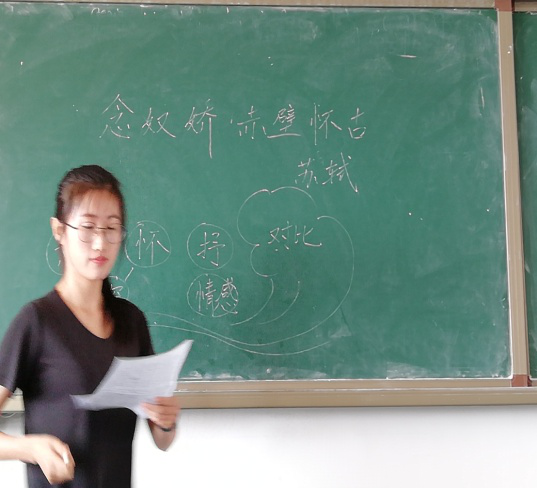 念奴娇·赤壁怀古
苏轼
怀 抒 对比
情感